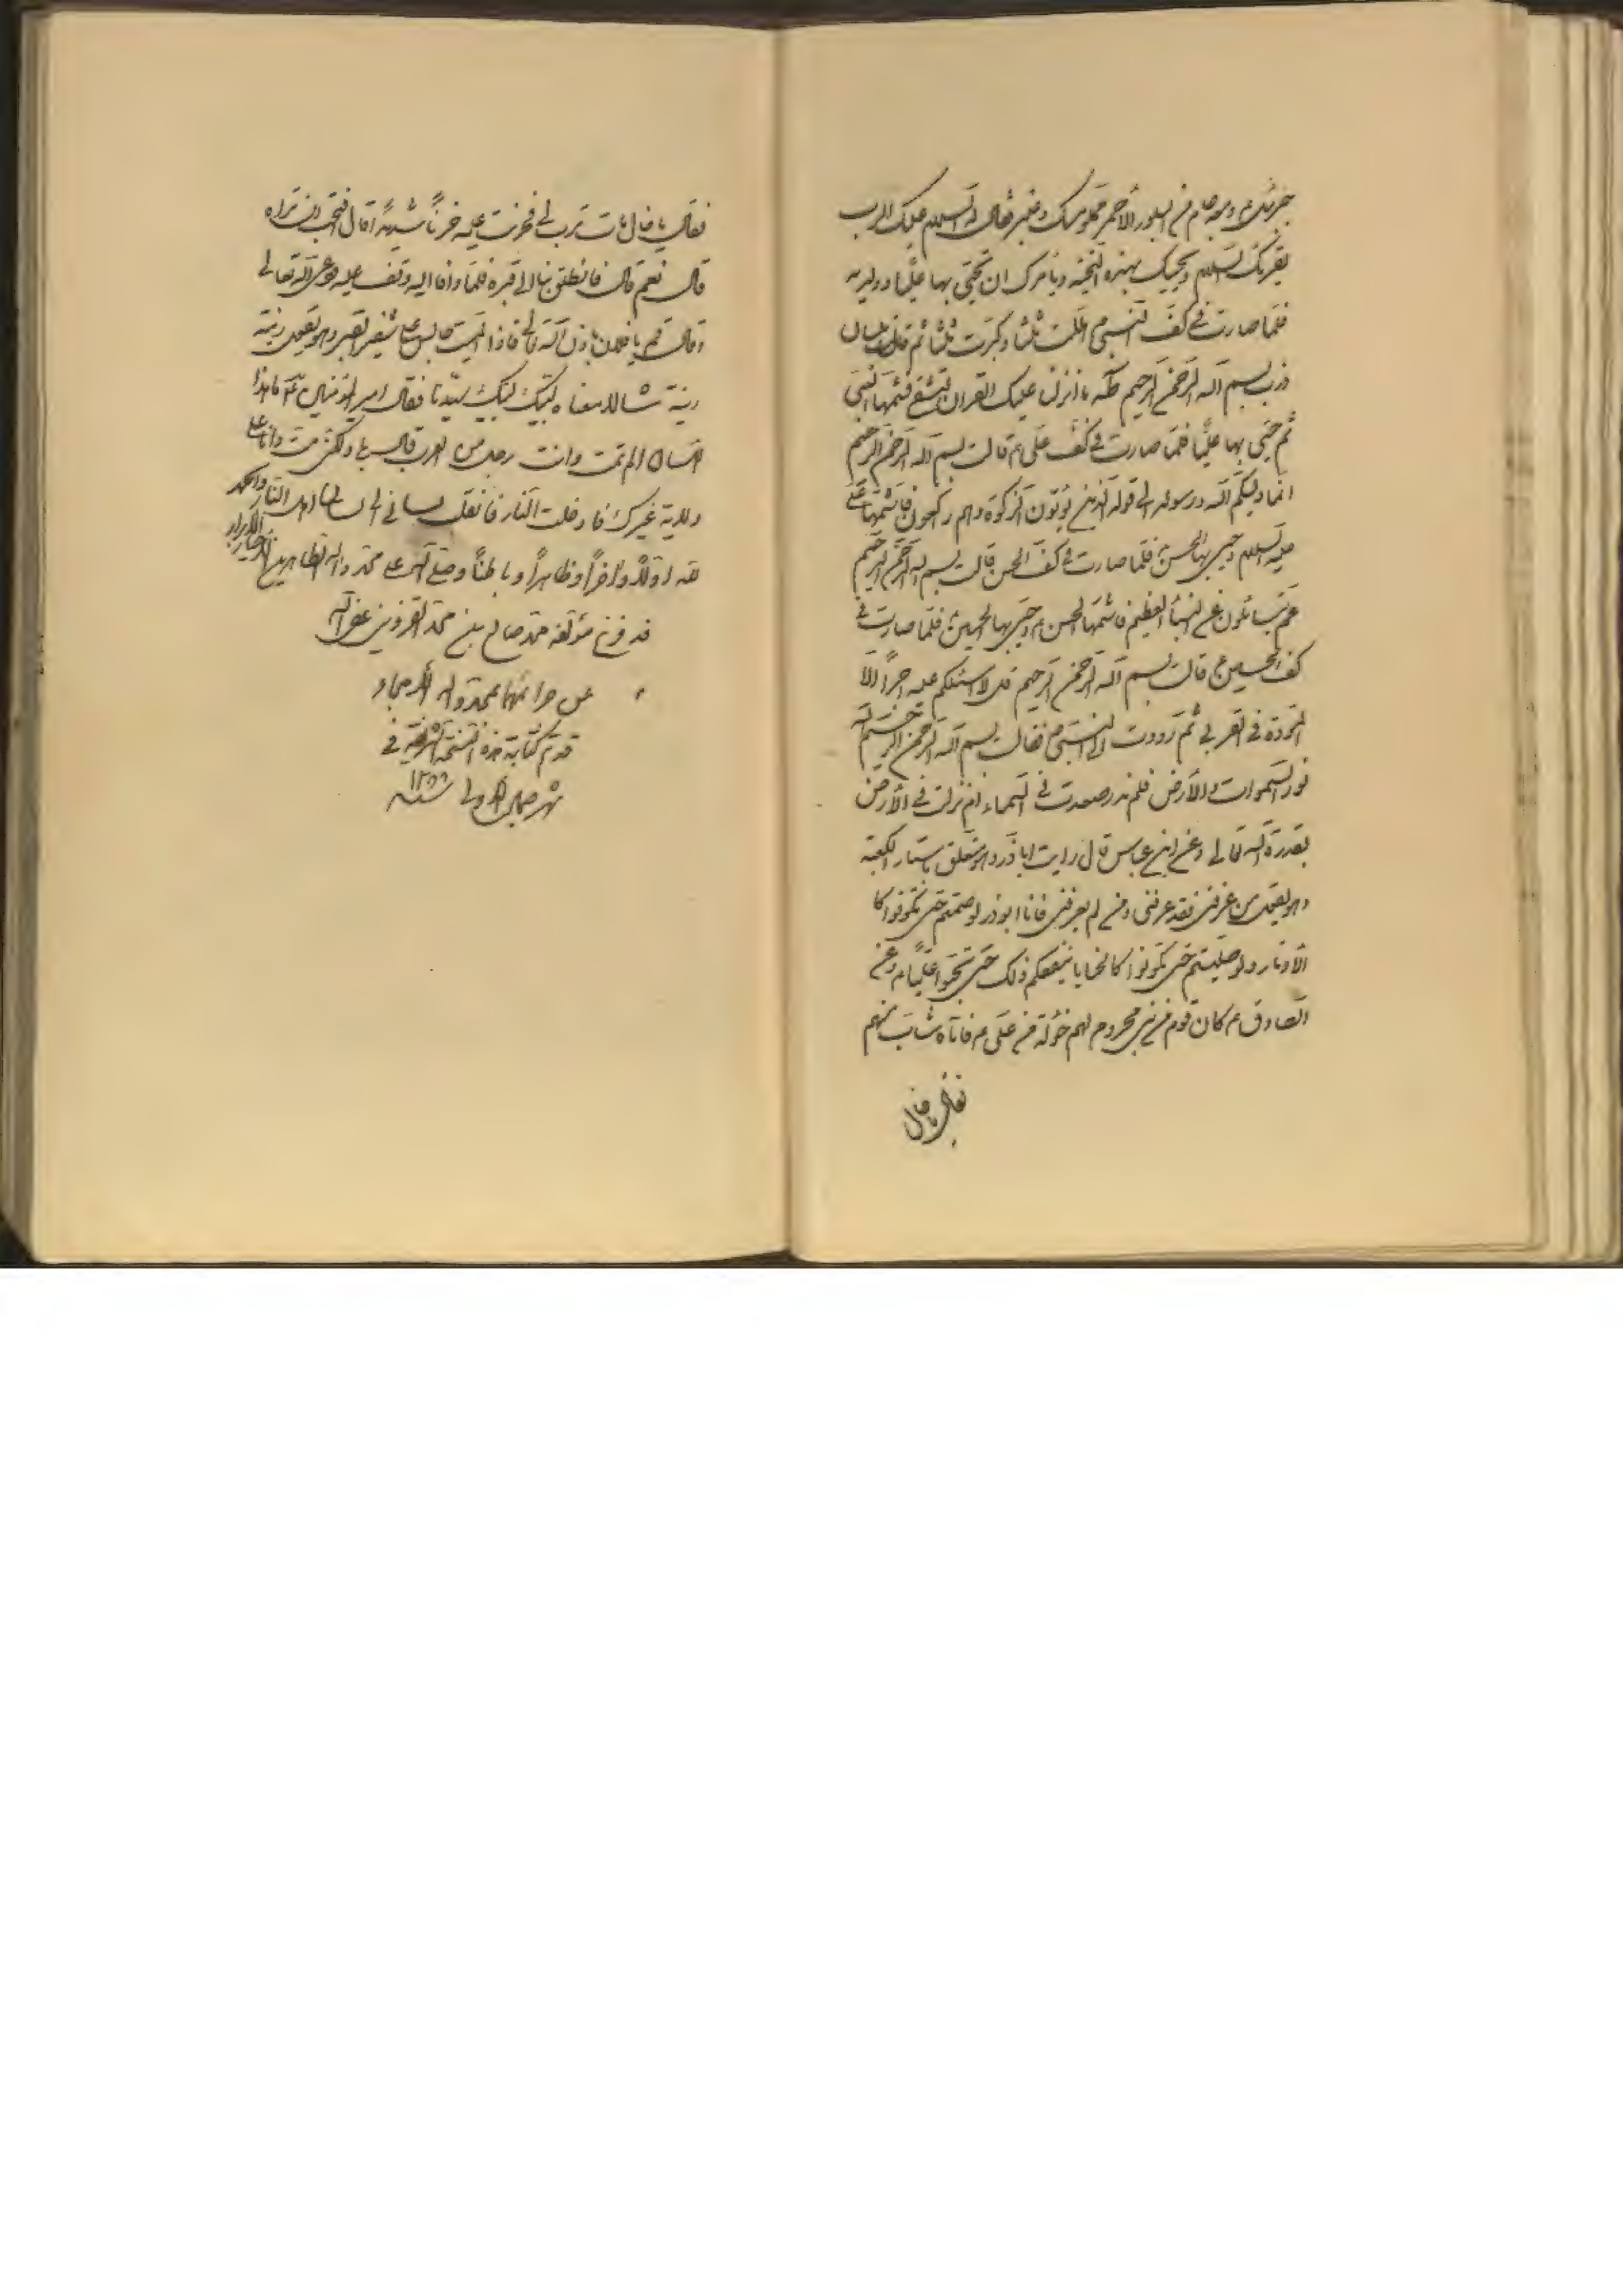 جبرئیل ع ومعه جام من البلور الاحمر مملو مسکا وعنبرا فقال له السلام علیک الرب
یقرئک السلام ویحییک بهذه التحیة ویامرک ان تحیی بها علیا وولدیه
فلما صارت فی کف النبی ص هللت ثلثا وکبرت ثلثا ثم قالت بلسان
ذرب بسم الله الرحمن الرحیم طه ما انزلنا علیک القران لتشقی فشمها النبی
ثم حیی بها علیا فلما صارت فی کف علی ع قالت بسم الله الرحمن الرحیم
انما ولیکم الله ورسوله الی قوله الذین یؤتون الزکوة وهم راکعون فاشتمها علی
علیه السلام وحیی بها الحسن فلما صارت فی کف الحسن قالت بسم الله الرحمن الرحیم
عم یتسائلون عن النبأ العظیم فاشتمها الحسن ع وحیی بها الحسین ع فلما صارت فی
کف الحسین ع قالت بسم الله الرحمن الرحیم قل لا اسئلکم علیه اجرا الا
المودة فی القربی ثم ردت الی النبی ص فقالت بسم الله الرحمن الرحیم الله
نور السموات والارض فلم ندر صعدت فی السماء ام نزلت فی الارض
بقدرة الله تعالی وعن ابن عباس قال رایت اباذر وهو متعلق باستار الکعبة
وهو یقول من عرفنی فقد عرفنی ومن لم یعرفنی فانا ابوذر لو صمتم حتی تکونوا کا
لاوتار ولو صلیتم حتی تکونوا کالحنایا ما ینفعکم ذلک حتی تحبوا علیا ع وعن
الصادق ع کان قوم من بنی مخزوم لهم خؤلة من علی ع فاتاه شاب منهم
فقال یا خال
فقال یا خال مات ترب لی فحزنت علیه حزنا شدیدا قال فتحب ان تراه
قال نعم قال فانطلق بنا الی قبره فلما وافا الیه وقف علیه ودعی الله تعالی
وقال قم یا فلان باذن الله تعالی فاذا المیت جالس علی شفیر القبر وهو یقول
معناه لبیک لبیک سیدنا فقال امیر المؤمنین ع ما هذا
اللسان الم تمت وانت رجل من العرب قال بلی ولکنی مت وانا علی
ولایة غیرک فادخلت النار فانقلب لسانی الی لسان اهل النار والحمد
لله اولا واخرا وظاهرا وباطنا وصلی الله علی محمد واله الطاهرین الاخیار الابرار
قد فرغ مؤلفه محمد صالح بن محمد القزوینی غفر الله
عن جرائمهما بمحمد واله الامجاد
قد تم کتابة هذه النسخة الشریفة فی
شهر جمادی الاولی سنة